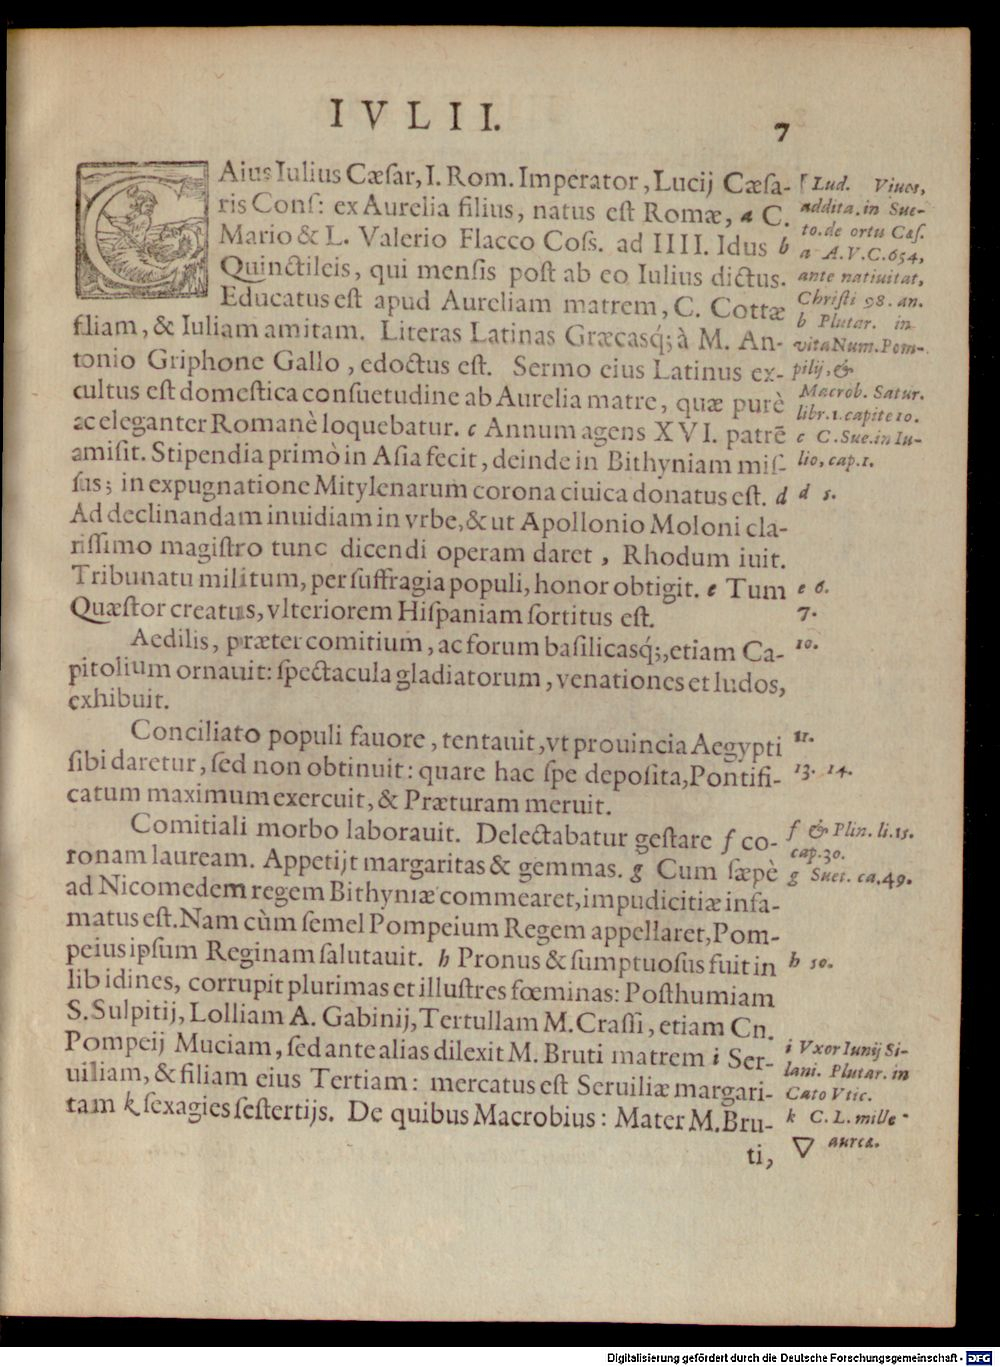 IVLII.
7
CAius Iulius Cæſar, I. Rom. Imperator, Lucij Cæſa-
ris Conſ: ex Aurelia filius, natus eſt Romæ, a C.
Mario & L. Valerio Flacco Coſſ. ad IIII. Idus b
Quinctileis, qui menſis poſt ab eo Iulius dictus.
Educatus eſt apud Aureliam matrem, C. Cottæ
filiam, & Iuliam amitam. Literas Latinas Græcasq́; à M. An-
tonio Griphone Gallo, edoctus eſt. Sermo eius Latinus ex-
cultus eſt domeſtica conſuetudine ab Aurelia matre, quæ purè
ac eleganter Romanè loquebatur. c Annum agens XVI. patrē
amiſit. Stipendia primò in Aſia fecit, deinde in Bithyniam miſ-
ſus; in expugnatione Mitylenarum corona ciuica donatus eſt. d
Ad declinandam inuidiam in vrbe, & ut Apollonio Moloni cla-
riſſimo magiſtro tunc dicendi operam daret, Rhodum iuit.
Tribunatu militum, per ſuffragia populi, honor obtigit. e Tum
Quæſtor creatus, vlteriorem Hiſpaniam ſortitus eſt.
Aedilis, præter comitium, ac forum baſilicasq́;, etiam Ca-
pitolium ornauit: ſpectacula gladiatorum, venationes et ludos,
exhibuit.
Conciliato populi fauore, tentauit, vt prouincia Aegypti
ſibi daretur, ſed non obtinuit: quare hac ſpe depoſita, Pontifi-
catum maximum exercuit, & Præturam meruit.
Comitiali morbo laborauit. Delectabatur geſtare f co-
ronam lauream. Appetijt margaritas & gemmas. g Cum ſæpè
ad Nicomedem regem Bithyniæ commearet, impudicitiæ infa-
matus eſt. Nam cùm ſemel Pompeium Regem appellaret, Pom-
peius ipſum Reginam ſalutauit. h Pronus & ſumptuoſus fuit in
libidines, corrupit plurimas et illuſtres fœminas: Poſthumiam
S. Sulpitij, Lolliam A. Gabinij, Tertullam M. Craſſi, etiam Cn.
Pompeij Muciam, ſed ante alias dilexit M. Bruti matrem i Ser-
uiliam, & filiam eius Tertiam: mercatus eſt Seruiliæ margari-
tam k ſexagies ſeſtertijs. De quibus Macrobius: Mater M. Bru-
ti,
Lud. Viues,
addita. in Sue-
to. de ortu Cæſ.
a A.V.C. 654,
ante natiuitat,
Chriſti 98. an.
b Plutar. in
vita Num. Pom-
pilij, &
Macrob. Satur.
libr. 1. capite 10.
c C. Sue. in Iu-
lio, cap. 1.
d 5.
e 6.
7.
10.
11.
13. 14.
f & Plin. li. 15.
cap. 30.
g Suet. ca. 49.
h 50.
i Vxor Iunij Si-
lani. Plutar. in
Cato Vtic.
k C. L. mille
▽ aurea.
Digitalisierung gefördert durch die Deutsche Forschungsgemeinschaft - DFG